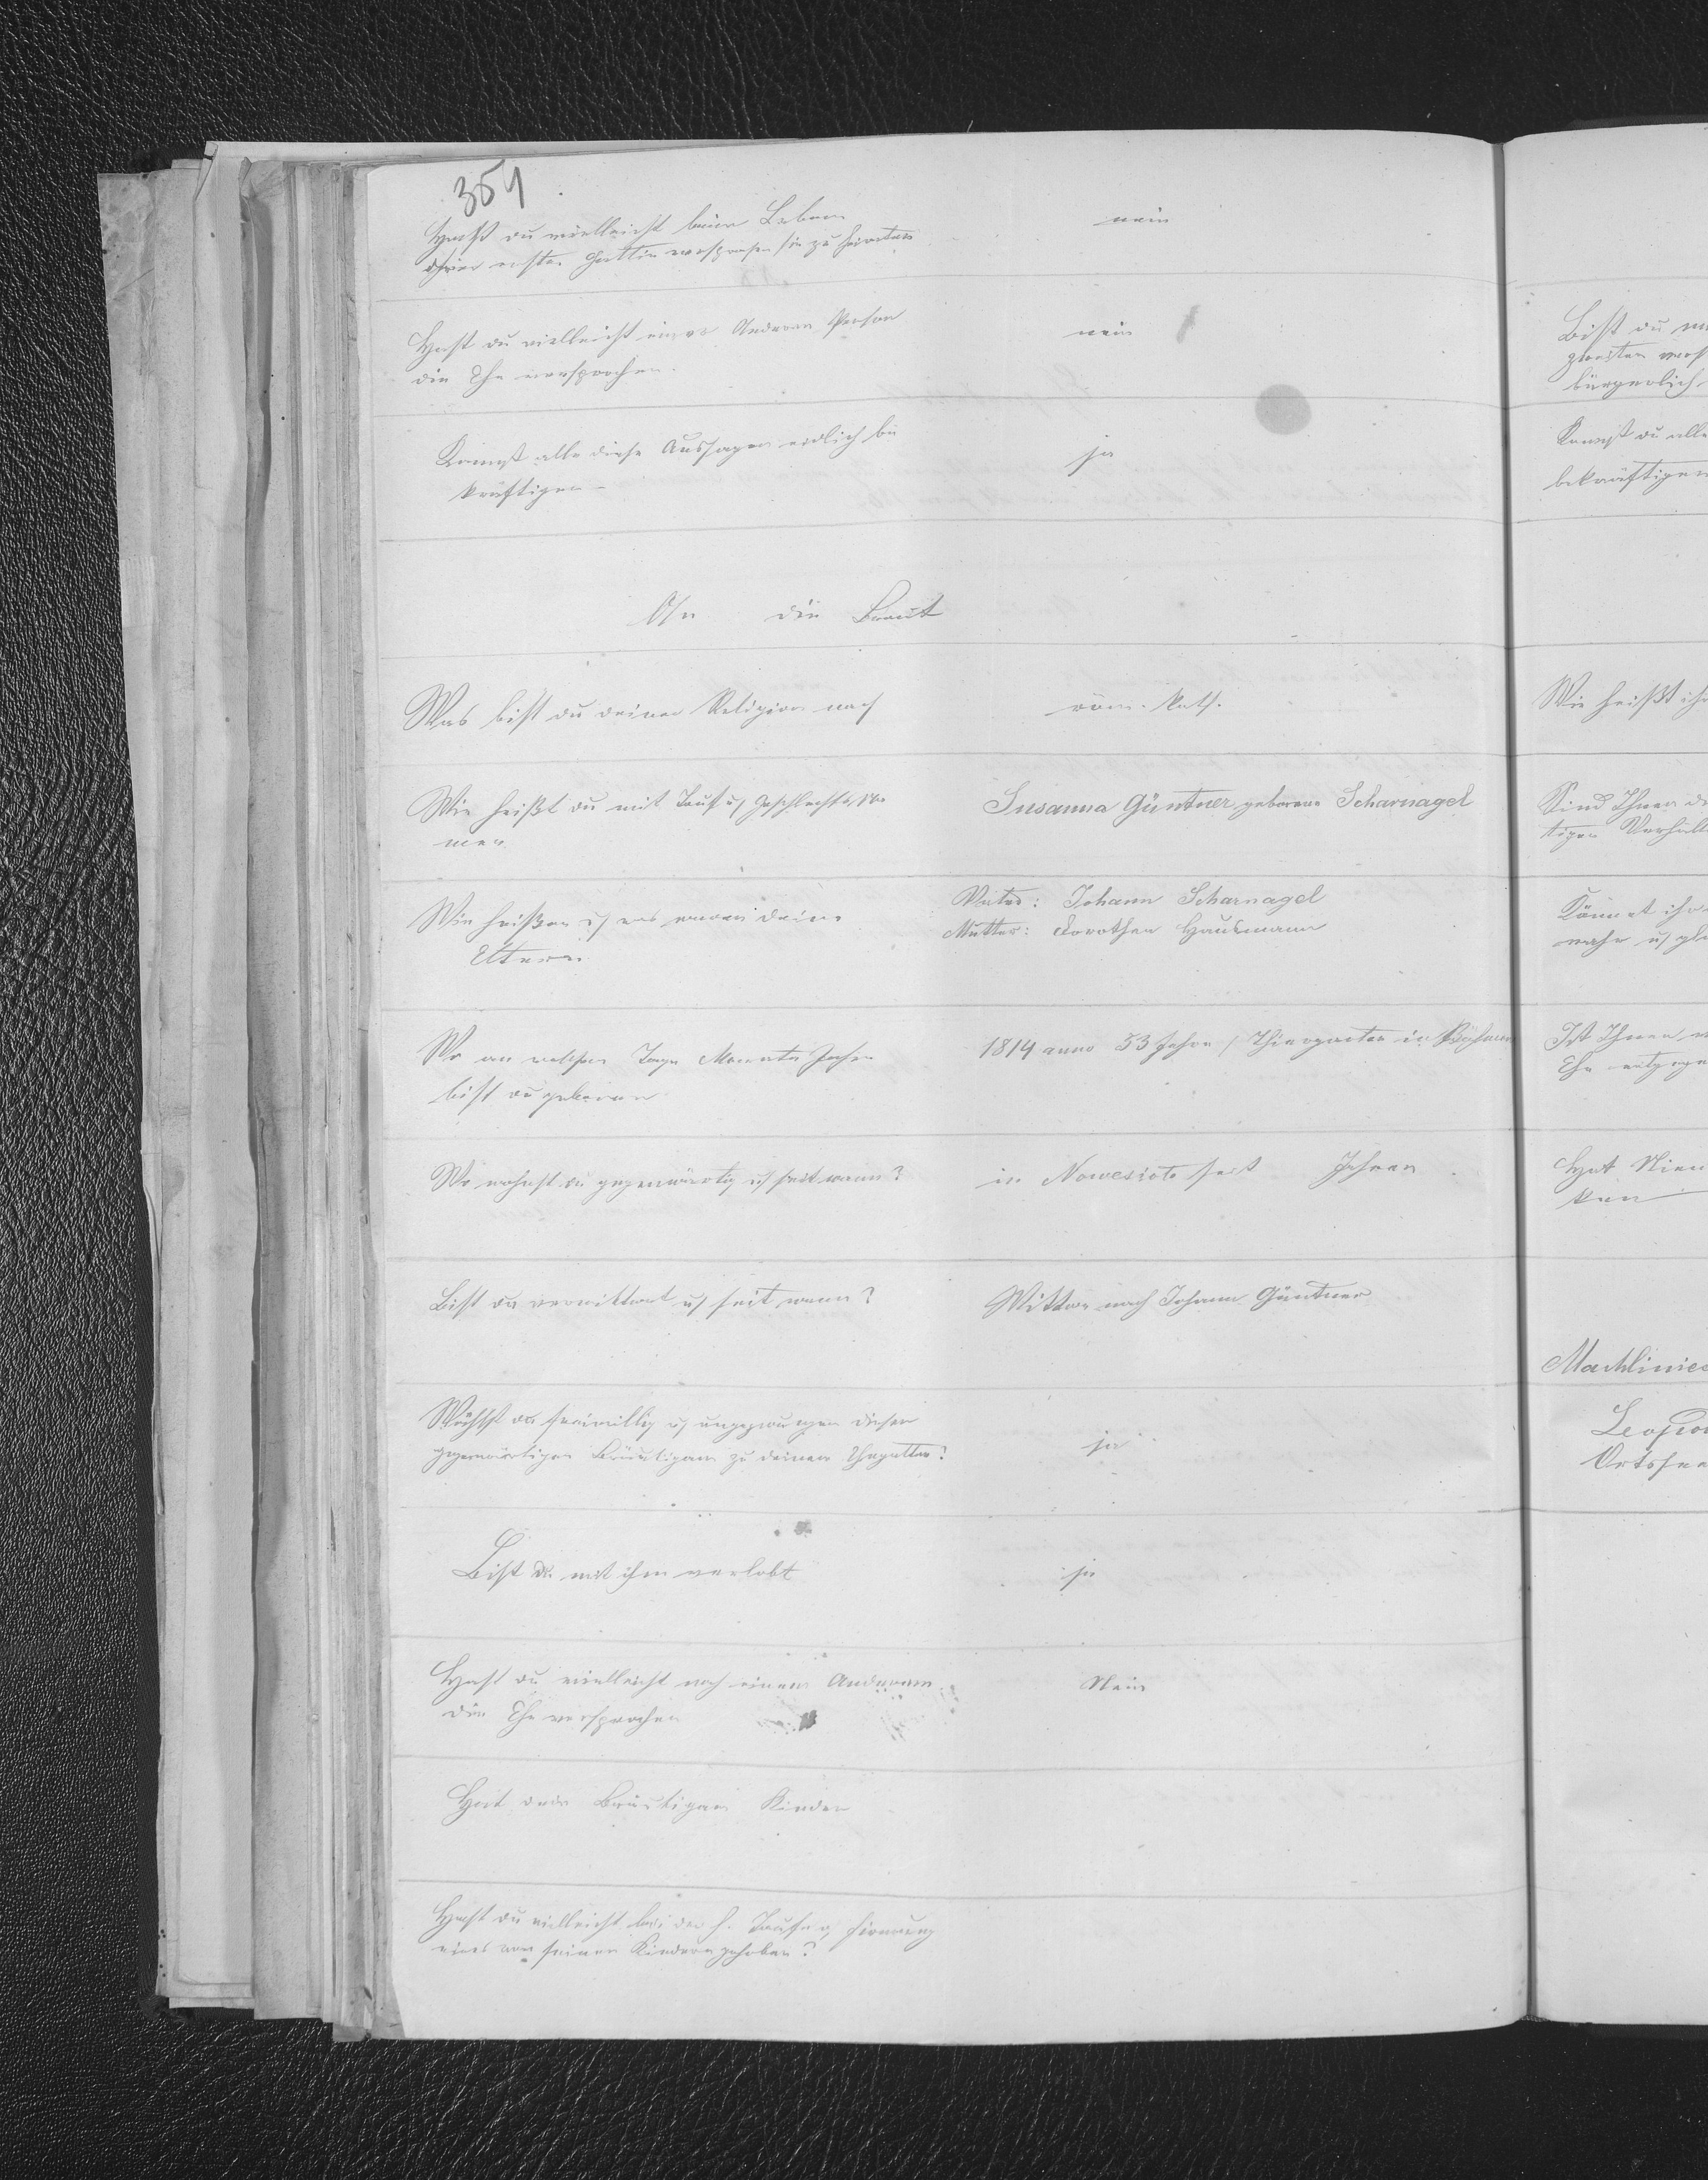 354
Hast du vielleicht beim Leben
deiner ersten Gattin versprochen sie zu heiraten
nein
Hast du vielleicht einer Anderen Person
die Ehe versprochen.
nein
Kannst alle diese Aussagen eidlich be
kräftigen -
ja
An die Braut
Was bist du deiner Religion nach
röm. kath.
Wie heißt du mit Tauf u. Geschlechts Na
men
Susanna Güntner geborene Scharnagel
Wie heißen u. was waren deine
Eltern
Vater: Johann Scharnagel
Mutter: Dorothea Hausmann
Wo an welchem Tage Monate Jahre
bist du geboren
1814 anno 53 Jahre / Thiergarten in Böhmen
Wo wohnst du gegenwärtig u. seit wann?
in Nowesioło seit Jahren
Bist du verwittwet u. seit wann?
Wittwe nach Johann Güntner
Wählst du freiwillig u. ungezwungen diesen
gegenwärtigen Bräutigam zu deinem Ehegatten?
ja
Bist du mit ihm verlobt
ja
Hast du vielleicht noch einem Anderem
die Ehe versprochen
Nein
Hat dein Bräutigam Kinder
Hast du vielleicht bei der h. Taufe o. Firmung
eines von seinen Kindern gehoben?
Bist du
bürgerlich
Kannst du alle
bekräftigen
Wie heißt ihr
Sind Ihnen
tigen
Könnet ihr
wahr u.
Ist Ihnen
Ehe
Hat
Machlinie
Ortsfee